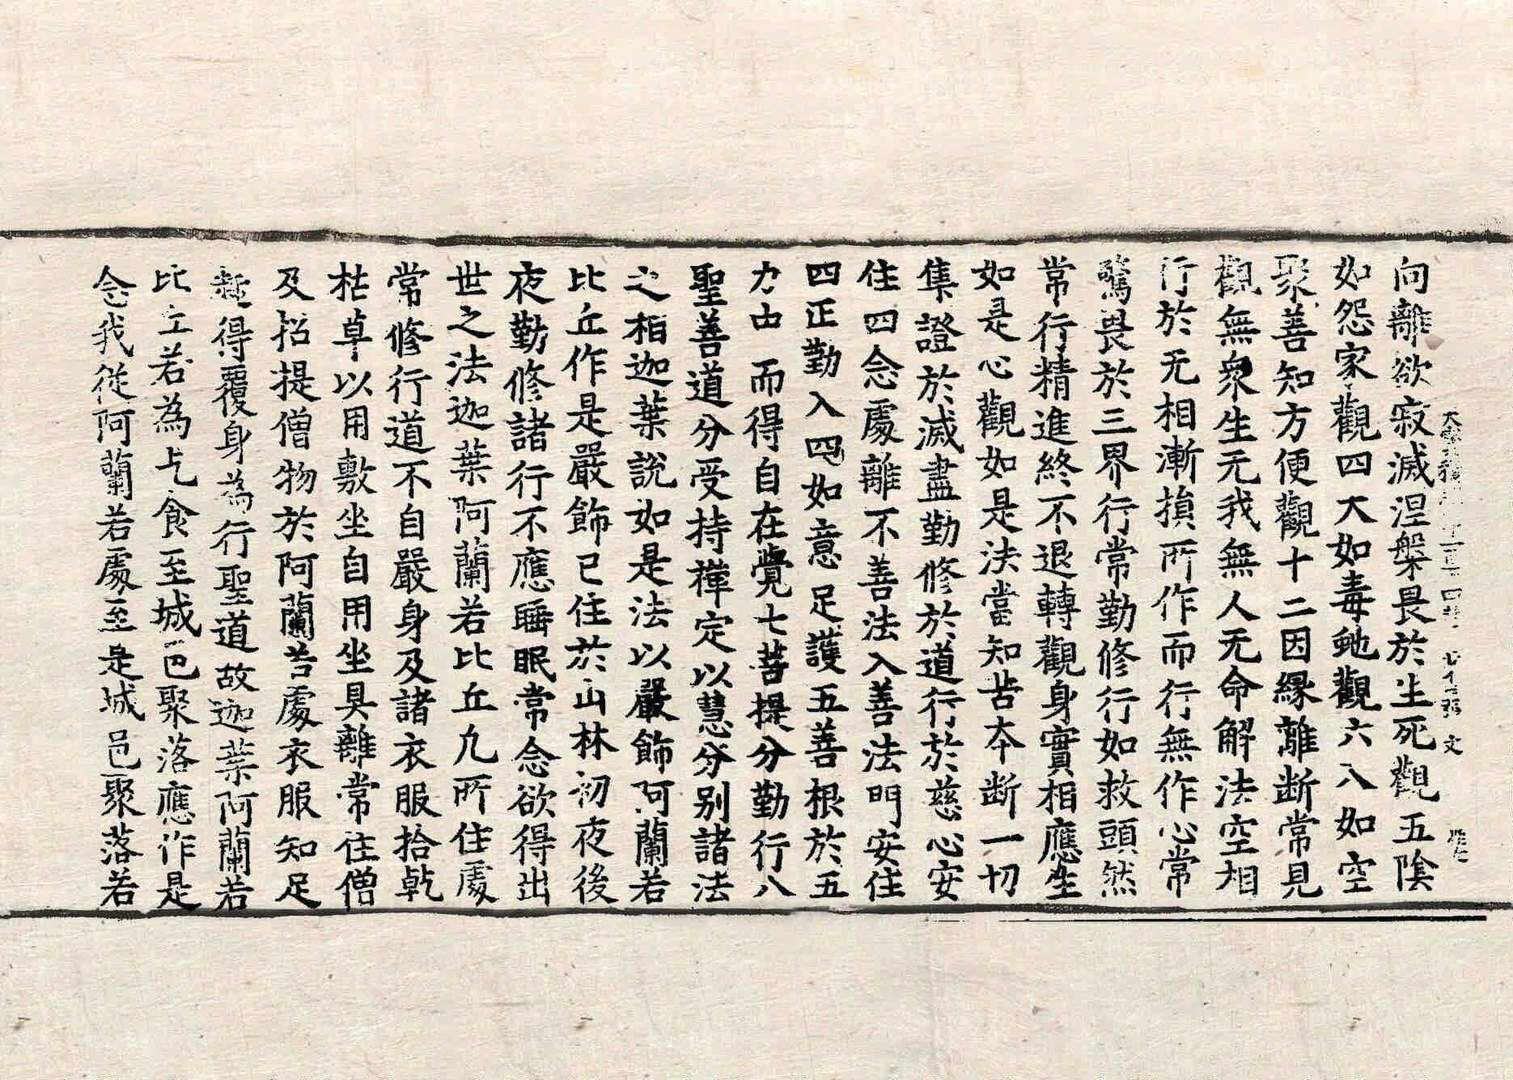 向離欲寂滅涅槃畏於生死觀五陰
如怨家觀四大如毒虵觀六入如空
聚善知方便觀十二因緣離斷常見
觀無衆生无我無人无命解法空相
行於无相漸損所作而行無作心常
驚畏於三界行常勤修行如救頭然
常行精進終不退轉觀身實相應生
如是心觀如是法當知苦夲断一切
集證於滅盡勤修於道行於慈心安
住四念處離不善法入善法門安住
四正勤入四如意足護五善根於五
力由而得自在覺七菩提分勤行八
聖善道分受持禪定以慧分别諸法
之相迦葉說如是法以嚴飾阿蘭若
比丘作是嚴飾已住於山林初夜後
夜勤修諸行不應睡眠常念欲得出
世之法迦葉阿蘭若比丘凡所住處
常修行道不自嚴身及諸衣服拾乾
枯草以用敷坐自用坐具離常住僧
及招提僧物於阿蘭若處衣服知足
趣得覆身為行聖道故迦葉阿蘭若
比丘若為乞食至城邑聚落應作是
念我從阿蘭若處至是城邑聚落若